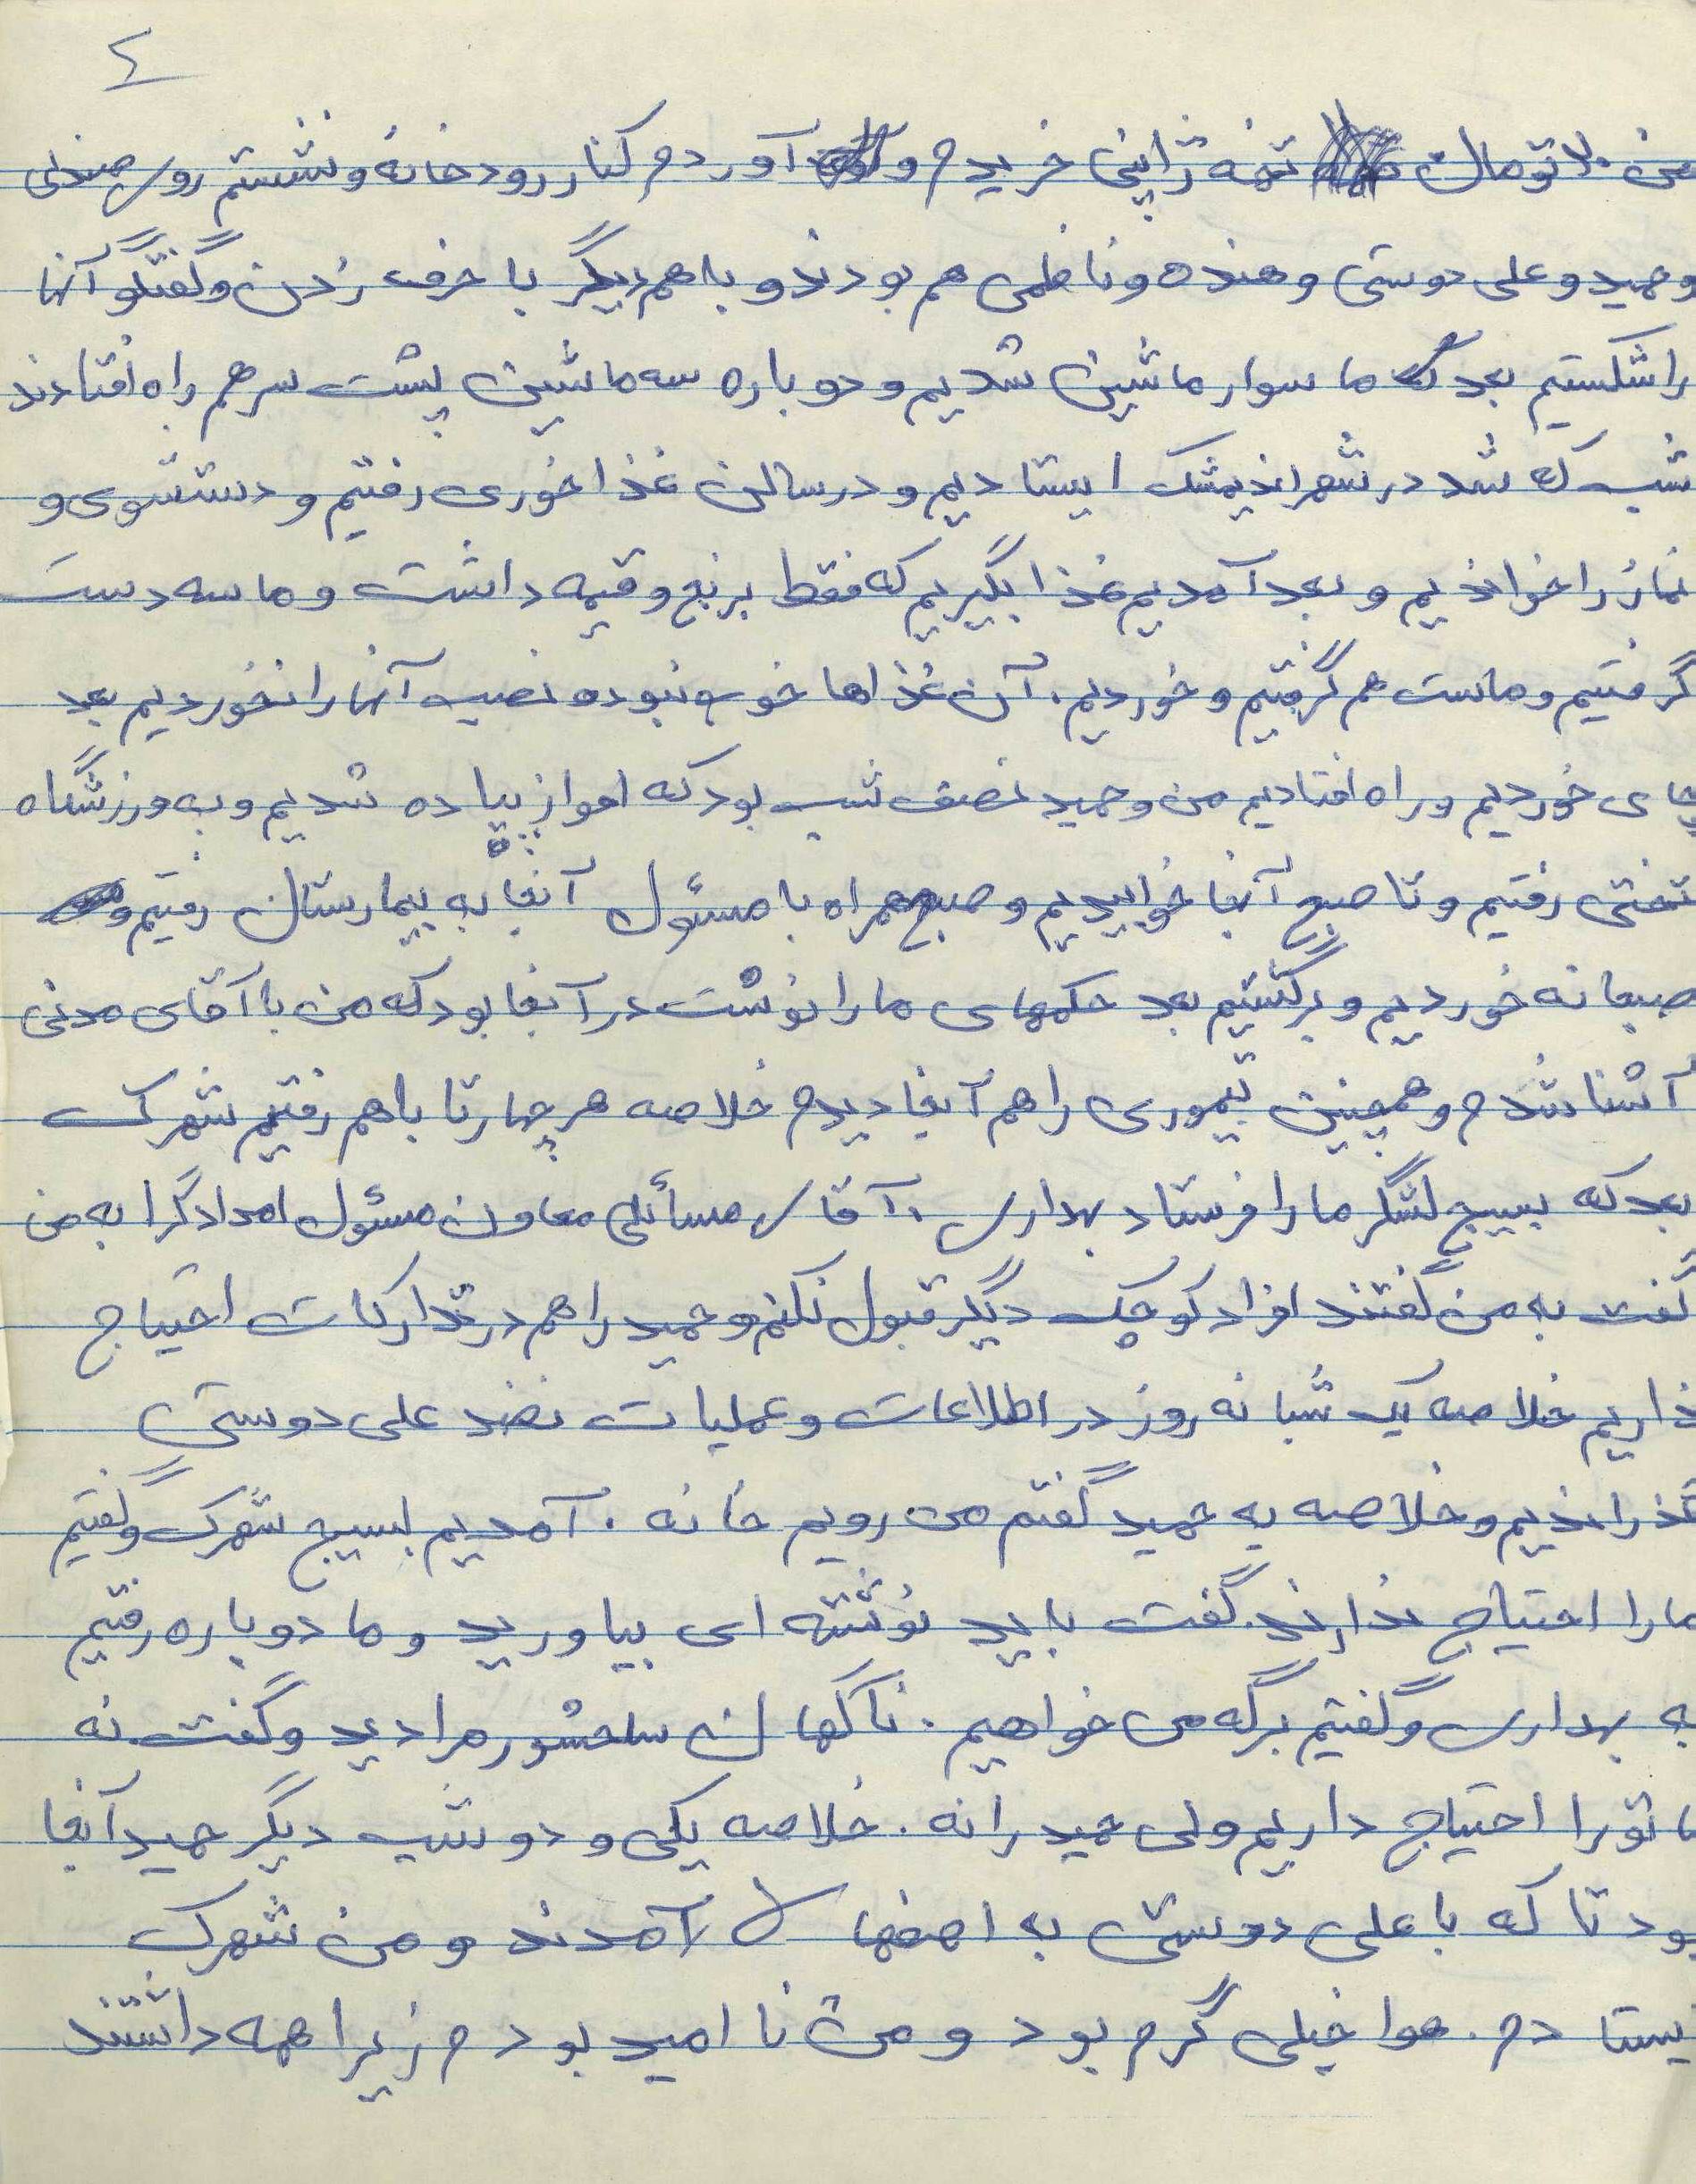 ٤
من ۷۰ تومان تخمه ژاپنی خریدم و آوردم کنار رودخانه و نشستم روی صندلی
وحمید و علی دوستی وهنده و ناظمی هم بودند و با همدیگر با حرف زدن و گفتگو آنها
را شکستیم بعد که ما سوار ماشین شدیم و دوباره سه ماشین پشت سر هم راه افتادند
شب که شد در شهر اندیمشک ایستادیم و در سالن غذا خوری رفتیم و دستشوی و
نماز را خواندیم و بعد آمدیم غذا بگیریم که فقط برنج و قیمه داشت و ما سه دست
گرفتیم و ماست هم گرفتیم و خوردیم. آن غذاها خوب نبوده نصیب آنها را نخوردیم بعد
چای خوردیم و راه افتادیم من و حمید نصف شب بود که اهواز پیاده شدیم و به ورزشگاه
تختی رفتیم و تا صبح آنجا خوابیدیم و صبح همراه با مسئول آنجا به بیمارستان رفتیم و
صبحانه خوردیم و برگشتیم بعد حکمهای ما را نوشت در آنجا بود که من با آقای مدنی
آشنا شدم و همچنین تیموری را هم آنجا دیدم خلاصه هر چهارتا باهم رفتیم شهرک
بعد که بسیج لشگر ما را فرستاد بهداری. آقای مسائلی معاون مسئول امدادگرا به من
گفت به من گفتند افراد کوچک دیگر قبول نکنم و حمید را هم در تدارکات احتیاج
نداریم خلاصه یک شبانه روز در اطلاعات و عملیات نضد علی دوستی
گذراندیم و خلاصه به حمید گفتم می رویم خانه. آمدیم بسیج شهرک و گفتیم
ما را احتیاج ندارند. گفت باید نوشته ای بیاورید و ما دوباره رفتیم
به بهداری و گفتیم برگه می خواهیم. ناگهان سلحشور مرا دید و گفت نه
ما تو را احتیاج داریم ولی حمید را نه. خلاصه یکی و دو شب دیگر حمید آنجا
بود تا که با علی دوستی به اصفهان آمدند و من شهرک
ایستادم. هوا خیلی گرم بود و من نا امید بودم زیرا همه داشتند